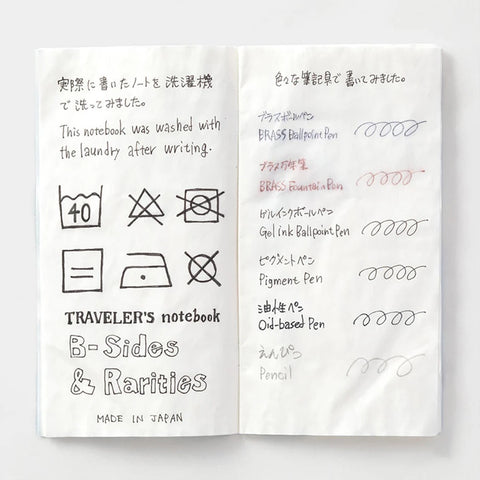 実際に書いたノートを洗濯機
で洗ってみました。
This notebook was washed with
the laundry after writing.
40
TRAVELER'S notebook
B-Sides
& Rarities
MADE IN JAPAN
色々な筆記具で書いてみました。
ブラスボールペン
BRASS Ballpoint Pen
ブラス万年筆
BRASS Fountain Pen
ゲルインクボールペン
Gel ink Ballpoint Pen
ピグメントペン
Pigment Pen
油性ペン
Oil-based Pen
えんぴつ
Pencil